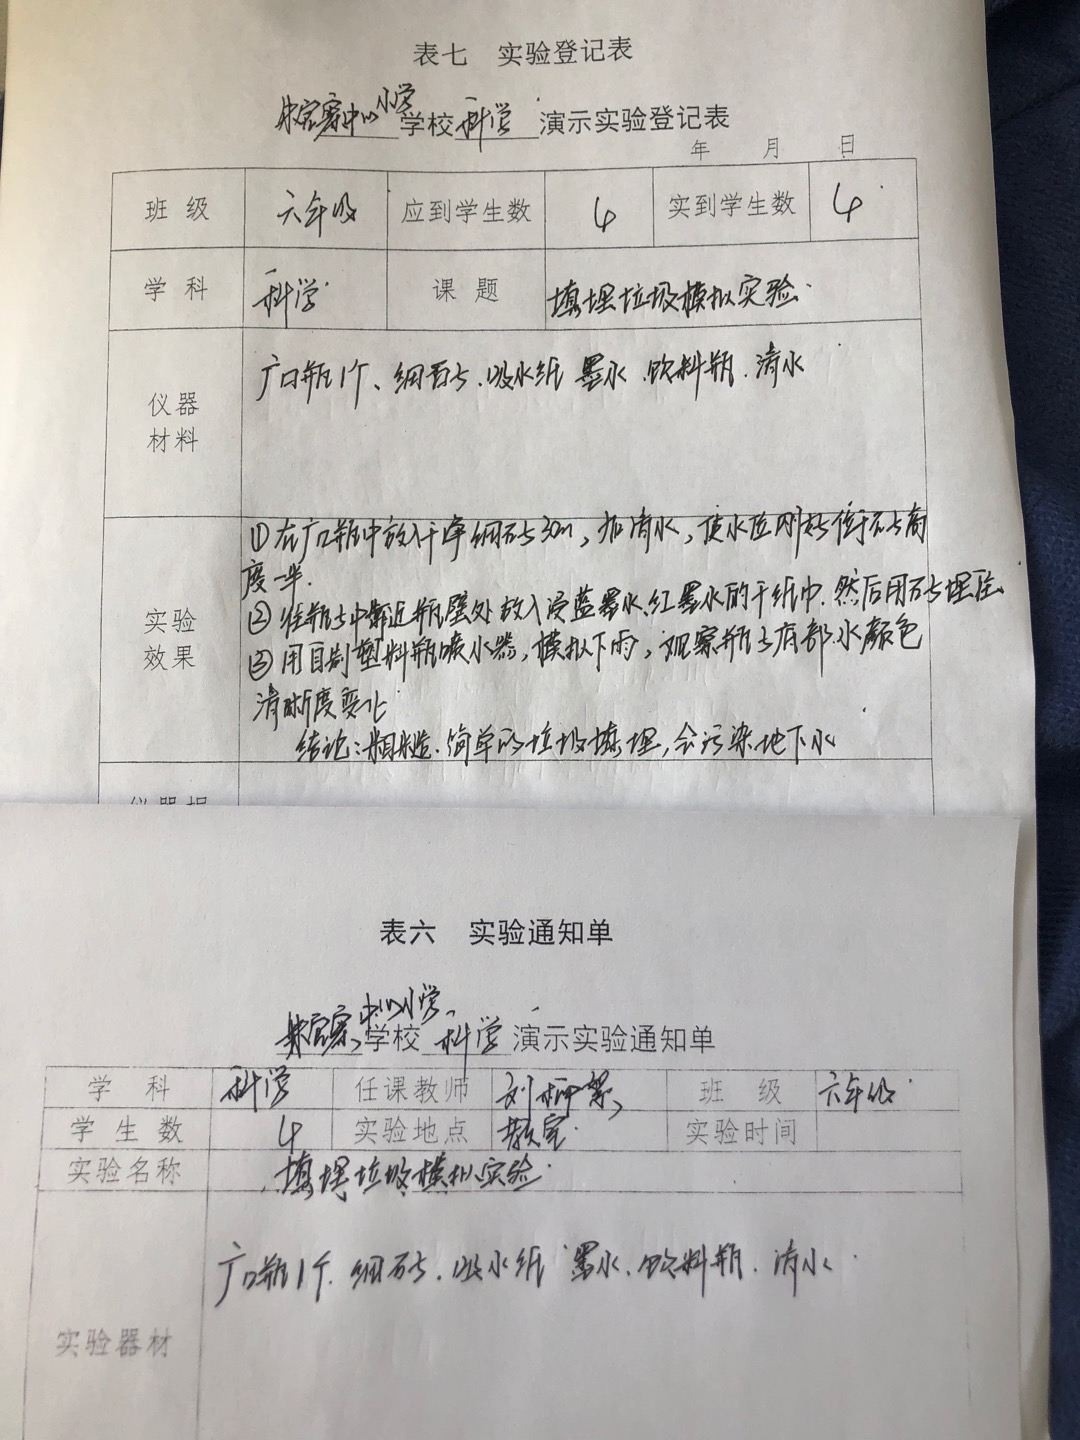 表七 实验登记表
中心小学学校科学演示实验登记表
年 月 日
班 级 六年级 应到学生数 4 实到学生数 4
学 科 科学 课 题 填埋垃圾模拟实验
仪器材料 广口瓶1个、细石子、吸水纸 墨水、饮料瓶、清水
实验效果
①在广口瓶中放入干净细石子 加清水,使水位刚好位于石子高
度一半.
②往瓶子中靠近瓶壁处放入浸蓝墨水、红墨水的干纸巾.然后用石子埋住
③用自制塑料瓶喷水器,模拟下雨,观察瓶子底部水颜色
清晰度变化
结论: 简单的垃圾填埋,会污染地下水
表六 实验通知单
中心小学学校科学演示实验通知单
学 科 科学 任课教师 刘 班 级 六年级
学 生 数 4 实验地点 教室 实验时间
实验名称 填埋垃圾模拟实验
实验器材 广口瓶1个、细石子、吸水纸 墨水、饮料瓶、清水